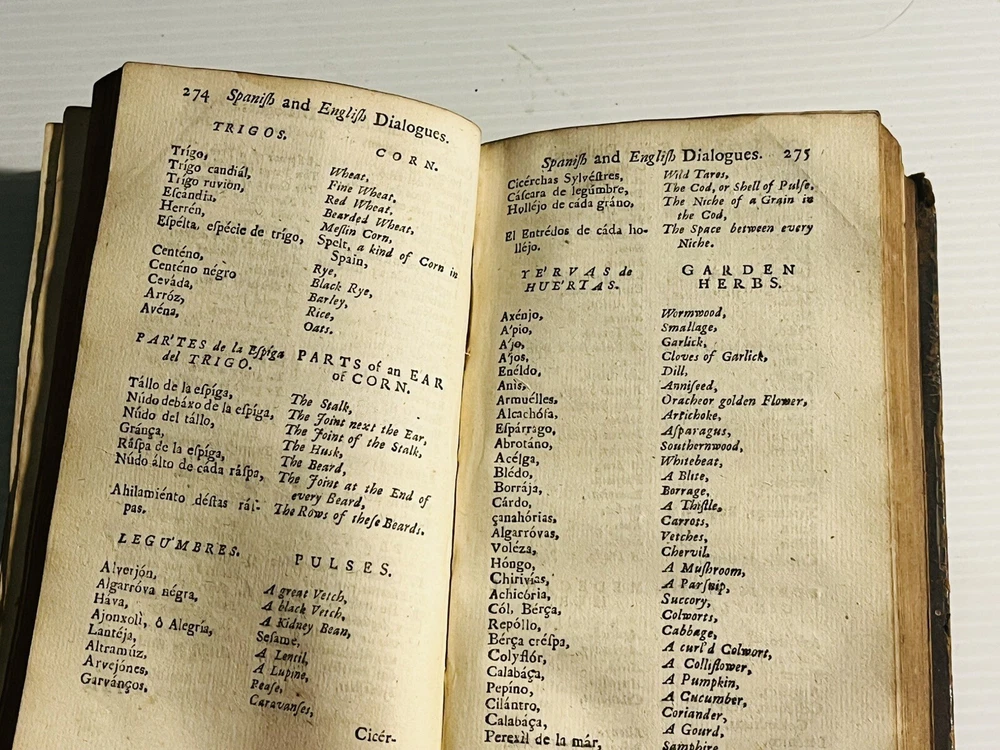 274 Spaniſh and Engliſh Dialogues.
TRIGOS. CORN.
Trígo, Wheat,
Trígo candiál, Fine Wheat,
Trígo ruvión, Red Wheat,
Eſcandia, Bearded Wheat,
Herrén, Meſlin Corn,
Eſpélta, eſpécie de trígo, Spelt, a kind of Corn in
Spain,
Centéno, Rye,
Centéno négro Black Rye,
Ceváda, Barley,
Arróz, Rice,
Avéna, Oats.
PAR'TES de la Eſpíga PARTS of an EAR
del TRIGO. of CORN.
Tállo de la eſpíga, The Stalk,
Núdo debáxo de la eſpíga, The Joint next the Ear,
Núdo del tállo, The Joint of the Stalk,
Gránça, The Husk,
Ráſpa de la eſpíga, The Beard,
Núdo álto de cáda ráſpa, The Joint at the End of
every Beard,
Ahilamiénto déſtas ráſ- The Rows of theſe Beards.
pas.
LEGU'MBRES. PULSES.
Alverjón, A great Vetch,
Algarróva négra, A black Vetch,
Háva, A Kidney Bean,
Ajonxolì, ò Alegría, Seſame,
Lantéja, A Lentil,
Altramúz, A Lupine,
Arvejónes, Peaſe,
Garvánços, Caravanſes,
Cicér-
Spaniſh and Engliſh Dialogues. 275
Cicérchas Sylvéſtres, Wild Tares,
Cáſcara de legúmbre, The Cod, or Shell of Pulſe,
Holléjo de cáda gráno, The Niche of a Grain in
the Cod,
El Entrédos de cáda ho- The Space between every
lléjo. Niche.
YE'RVAS de GARDEN
HUE'RTAS. HERBS.
Axénjo, Wormwood,
A'pio, Smallage,
A'jo, Garlick,
A'jos, Cloves of Garlick,
Enéldo, Dill,
Anìs, Anniſeed,
Armuélles, Oracheor golden Flower,
Alcachóſa, Artichoke,
Eſpárrago, Aſparagus,
Abrotáno, Southernwood,
Acélga, Whitebeat,
Blédo, A Blite,
Borrája, Borrage,
Cárdo, A Thiſtle,
çanahórias, Carrots,
Algarróvas, Vetches,
Voléza, Chervil,
Hóngo, A Muſhroom,
Chirivías, A Parſnip,
Achicória, Succory,
Cól, Bérça, Colworts,
Repóllo, Cabbage,
Bérça créſpa, A curl'd Colwort,
Colyflór, A Colliflower,
Calabáça, A Pumpkin,
Pepíno, A Cucumber,
Cilántro, Coriander,
Calabáça, A Gourd,
Perexìl de la már, Samphire